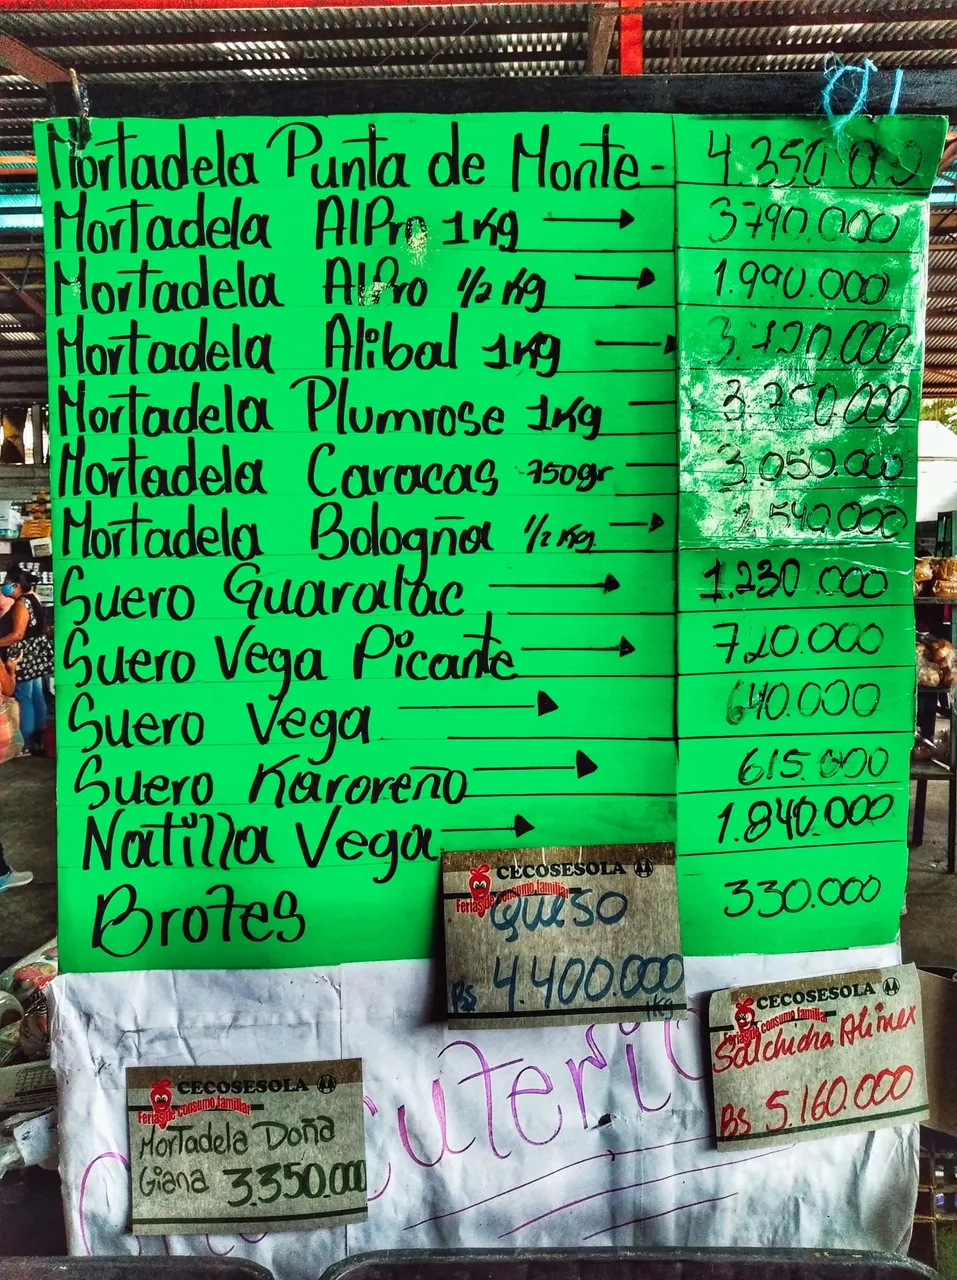 Mortadela Punta de Monte - 4.350.000
Mortadela AlPro 1Kg → 3790.000
Mortadela AlPro 1/2 Kg → 1.990.000
Mortadela Alibal 1Kg →
Mortadela Plumrose 1Kg — 3.250.000
Mortadela Caracas 750gr — 3.050.000
Mortadela Bologña 1/2 Kg → 2.540.000
Suero Guaralac → 1.230.000
Suero Vega Picante → 720.000
Suero Vega → 640.000
Suero Karoreño → 615.000
Natilla Vega → 1.840.000
Brotes 330.000
CECOSESOLA
Ferias de consumo familiar
Queso
Bs 4.400.000
1kg
CECOSESOLA
Ferias de consumo familiar
Salchicha Alimex
Bs 5.160.000
CECOSESOLA
Ferias de consumo familiar
Mortadela Doña
Giana 3.350.000